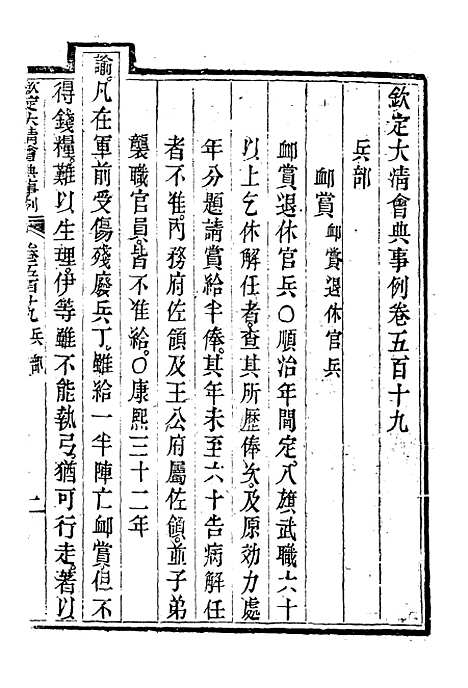 欽定大清會典事例卷五百十九
兵部
卹賞 卹賞退休官兵
卹賞退休官兵〇順治年閒定八旗武職六十
以上乞休解任者查其所歷俸次及原効力處
年分題請賞給半俸其年未至六十告病解任
者不准內務府佐領及王公府屬佐領並子弟
襲職官員皆不准給〇康熙三十二年
諭凡在軍前受傷殘廢兵丁雖給一半陣亡卹賞但不
得錢糧難以生理伊等雖不能執弓猶可行走著以
欽定大清會典事例 卷五百十九 兵部